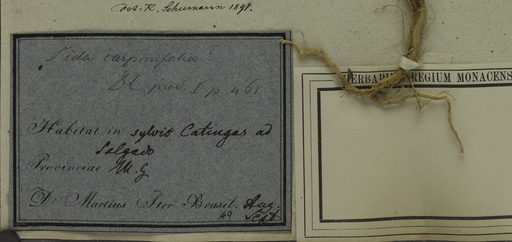 det. K. Schumann 1891.
Sida carpinifolia
DC. prod. I p. 461
Habitat in sylvis Catingas ad
Salgado
Provinciae M. G.
Dr Martius Iter Brasil. Aug.
Sept.
HERBARIUM REGIUM MONACENSE